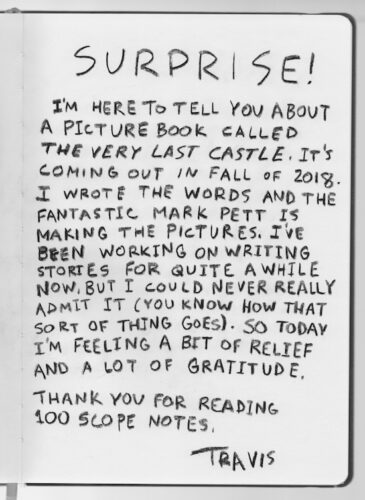 SURPRISE!
I'M HERE TO TELL YOU ABOUT
A PICTURE BOOK CALLED
THE VERY LAST CASTLE. IT'S
COMING OUT IN FALL OF 2018.
I WROTE THE WORDS AND THE
FANTASTIC MARK PETT IS
MAKING THE PICTURES. I'VE
BEEN WORKING ON WRITING
STORIES FOR QUITE A WHILE
NOW, BUT I COULD NEVER REALLY
ADMIT IT (YOU KNOW HOW THAT
SORT OF THING GOES). SO TODAY
I'M FEELING A BIT OF RELIEF
AND A LOT OF GRATITUDE.
THANK YOU FOR READING
100 SCOPE NOTES.
TRAVIS